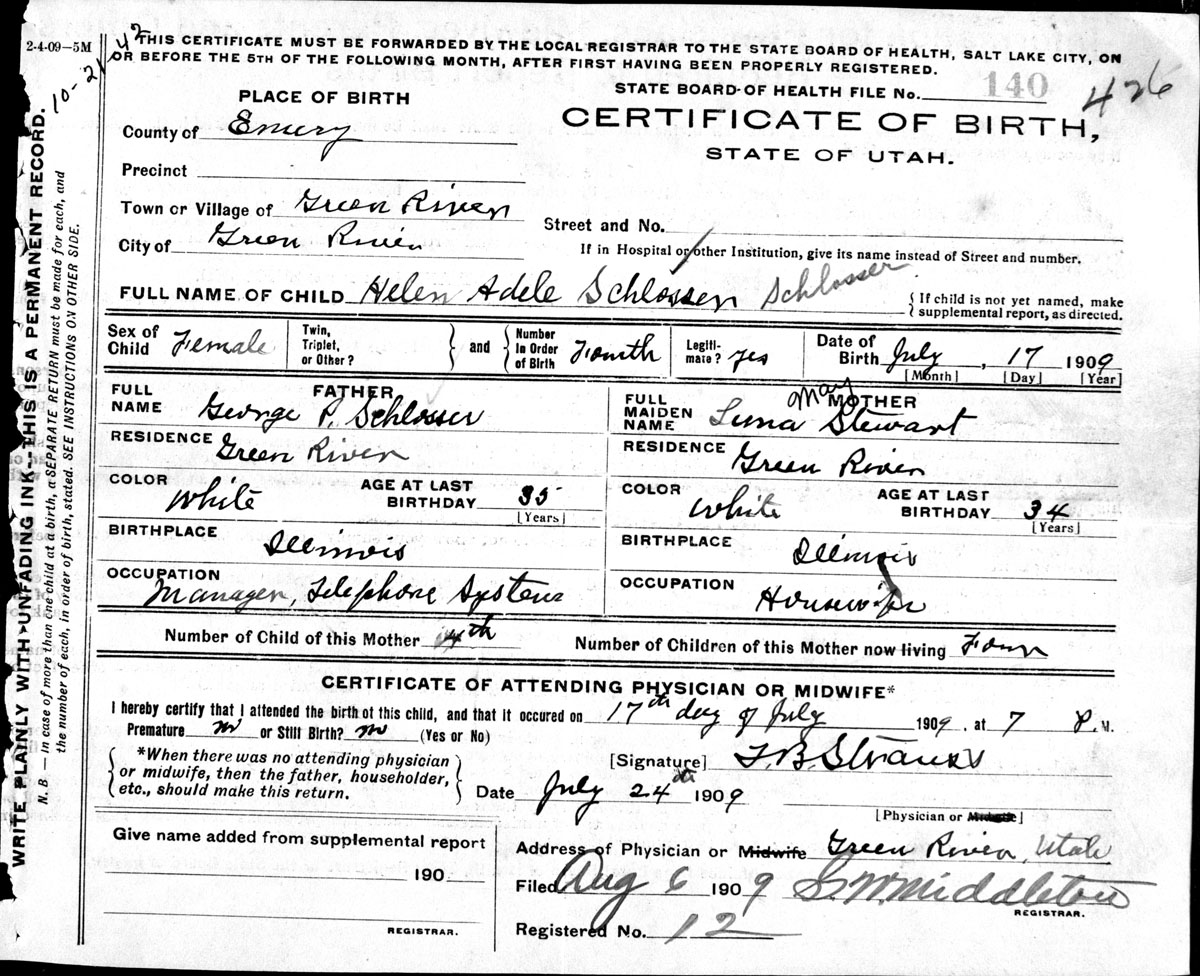 2-4-09—5M
42
THIS CERTIFICATE MUST BE FORWARDED BY THE LOCAL REGISTRAR TO THE STATE BOARD OF HEALTH, SALT LAKE CITY, ON
OR BEFORE THE 5TH OF THE FOLLOWING MONTH, AFTER FIRST HAVING BEEN PROPERLY REGISTERED.
10-21
STATE BOARD OF HEALTH FILE No. 140 426
PLACE OF BIRTH
CERTIFICATE OF BIRTH,
STATE OF UTAH.
County of Emery
Precinct
Town or Village of Green River
Street and No.
City of Green River
If in Hospital or other Institution, give its name instead of Street and number.
FULL NAME OF CHILD Helen Adele Schlosser Schlosser
{ If child is not yet named, make
supplemental report, as directed.
Sex of Child Female
Twin, Triplet, or Other?
and
Number In Order of Birth Fourth
Legiti-mate? yes
Date of Birth July, 17 1909
[Month] [Day] [Year]
FATHER
FULL NAME George P. Schlosser
RESIDENCE Green River
COLOR White
AGE AT LAST BIRTHDAY 35
[Years]
BIRTHPLACE Illinois
OCCUPATION Manager, Telephone System
MOTHER
FULL MAIDEN NAME Luna May Stewart
RESIDENCE Green River
COLOR White
AGE AT LAST BIRTHDAY 34
[Years]
BIRTHPLACE Illinois
OCCUPATION Housewife
Number of Child of this Mother 4th
Number of Children of this Mother now living Four
CERTIFICATE OF ATTENDING PHYSICIAN OR MIDWIFE*
I hereby certify that I attended the birth of this child, and that it occured on 17th day of July 1909, at 7 P.M.
Premature no or Still Birth? no (Yes or No)
*When there was no attending physician
or midwife, then the father, householder,
etc., should make this return.
[Signature] F.B. Strauss
Date July 24th 1909
[Physician or Midwife]
Give name added from supplemental report
190
REGISTRAR.
Address of Physician or Midwife Green River, Utah
Filed Aug 6 1909 S.W. Middleton
REGISTRAR.
Registered No. 12
WRITE PLAINLY WITH UNFADING INK—THIS IS A PERMANENT RECORD.
N. B.—In case of more than one child at a birth, a SEPARATE RETURN must be made for each, and
the number of each, in order of birth, stated. SEE INSTRUCTIONS ON OTHER SIDE.